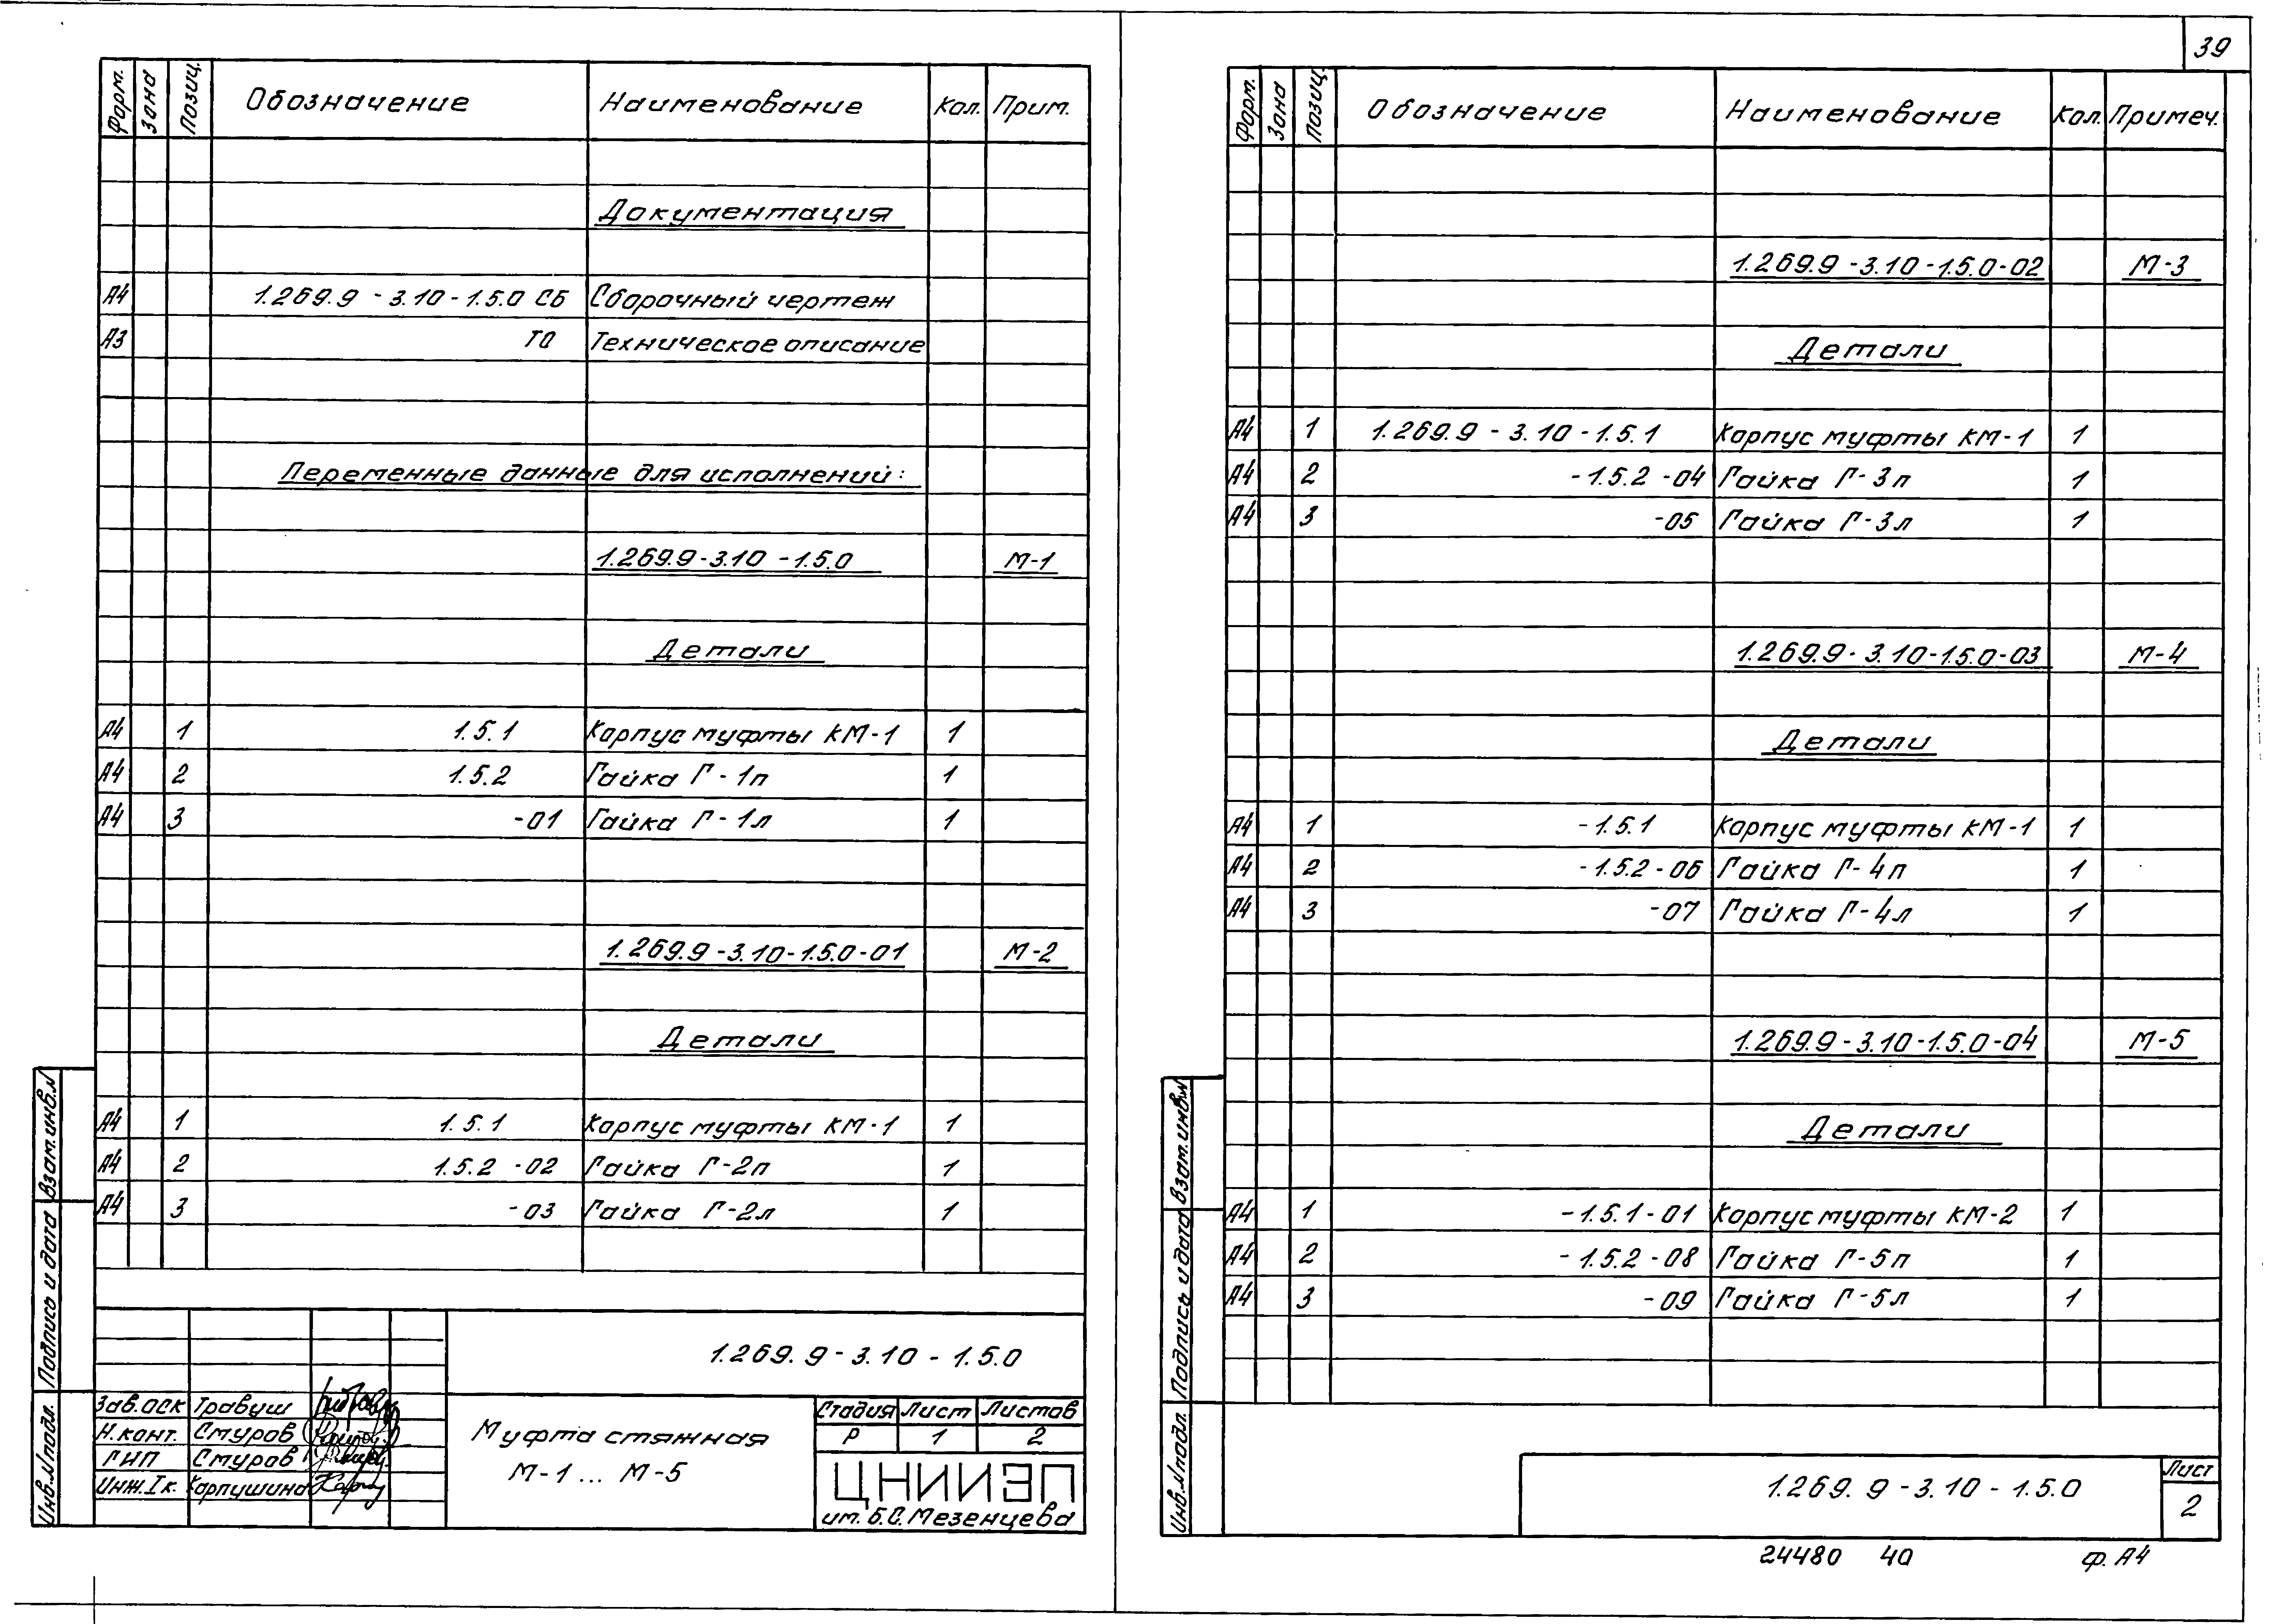 39
Форм. Зона Позиц. Обозначение Наименование Кол. Прим.
Документация
А4 1.269.9-3.10-1.5.0 СБ Сборочный чертеж
А3 ТО Техническое описание
Переменные данные для исполнений:
1.269.9-3.10-1.5.0 М-1
Детали
А4 1 1.5.1 Корпус муфты КМ-1 1
А4 2 1.5.2 Гайка Г-1п 1
А4 3 -01 Гайка Г-1л 1
1.269.9-3.10-1.5.0-01 М-2
Детали
А4 1 1.5.1 Корпус муфты КМ-1 1
А4 2 1.5.2-02 Гайка Г-2п 1
А4 3 -03 Гайка Г-2л 1
Взам.инв.N
Подпись и дата
Инв.N подл.
1.269.9-3.10-1.5.0
Зав.ОСК Травуш
Н.конт. Стуров
ГИП Стуров
Инж.Iк. Карпушина
Муфта стяжная
М-1... М-5
Стадия Лист Листов
Р 1 2
ЦНИИЭП
им. Б.С.Мезенцева
Форм. Зона Позиц. Обозначение Наименование Кол. Примеч.
1.269.9-3.10-1.5.0-02 М-3
Детали
А4 1 1.269.9-3.10-1.5.1 Корпус муфты КМ-1 1
А4 2 -1.5.2-04 Гайка Г-3п 1
А4 3 -05 Гайка Г-3л 1
1.269.9-3.10-1.5.0-03 М-4
Детали
А4 1 -1.5.1 Корпус муфты КМ-1 1
А4 2 -1.5.2-06 Гайка Г-4п 1
А4 3 -07 Гайка Г-4л 1
1.269.9-3.10-1.5.0-04 М-5
Детали
А4 1 -1.5.1-01 Корпус муфты КМ-2 1
А4 2 -1.5.2-08 Гайка Г-5п 1
А4 3 -09 Гайка Г-5л 1
Взам.инв.N
Подпись и дата
Инв.N подл.
1.269.9-3.10-1.5.0
Лист
2
24480 40 ф. А4